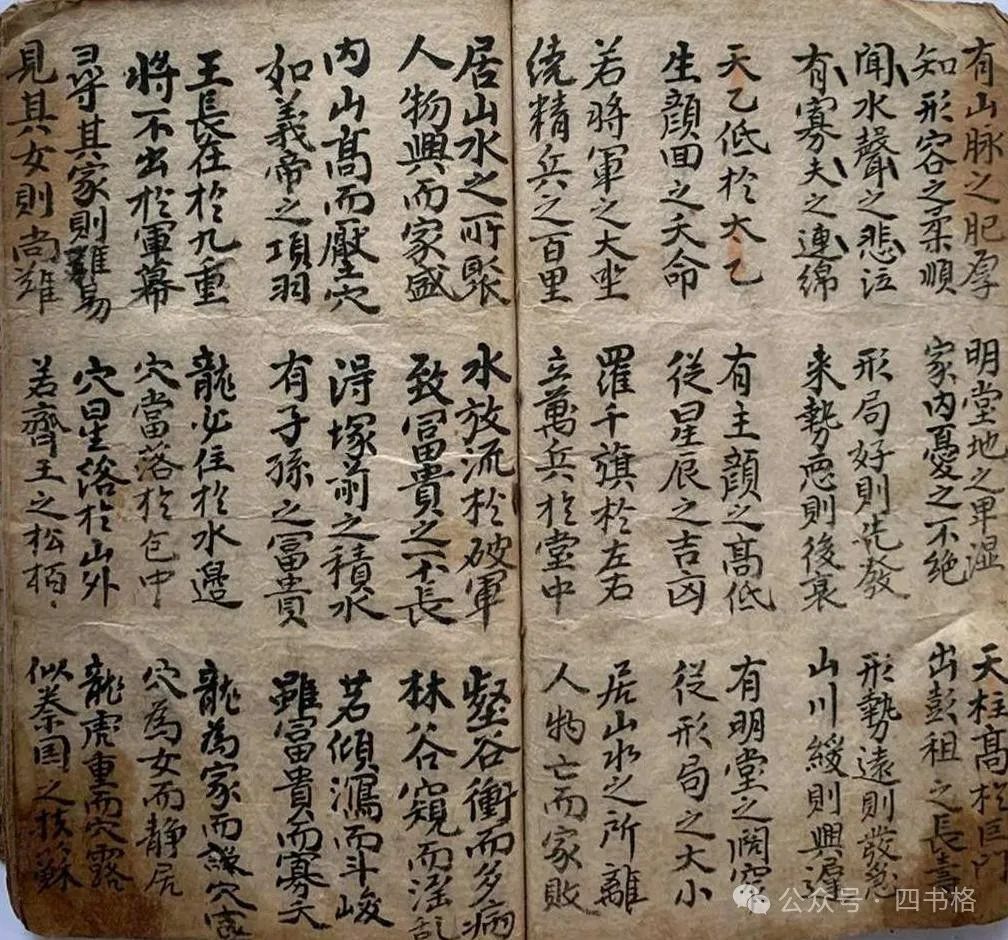 有山脉之肥厚
知形容之柔順
明堂地之卑湿
家内憂之不絶
天柱高於
出彭祖之長壽
聞水聲之悲泣
有寡夫之連綿
形局好則先發
来勢恶則後衰
形勢遠則發急
山川緩則興遲
天乙低於太乙
生顔回之夭命
有主顔之高低
従星辰之吉凶
有明堂之濶窄
従形局之大小
若将軍之大坐
绕精兵之百里
羅千旗於左右
立萬兵於堂中
居山水之所離
人物亡而家敗
居山水之所聚
人物興而家盛
水放流於破軍
致冨貴之不長
壑谷衝而多病
林谷窺而淫乱
内山高而壓穴
如義帝之項羽
得塚前之積水
有子孫之冨貴
若傾瀉而斗峻
雖富貴而寡夭
王長在於九重
将不出於軍幕
龍必住於水邊
穴當落於包中
龍為家而護穴
穴為女而静居
尋其家則難易
見其女則尚難
穴星落於山外
若齊王之松栢
龍虎重而穴露
似秦国之扶蘇
公众号·四书格